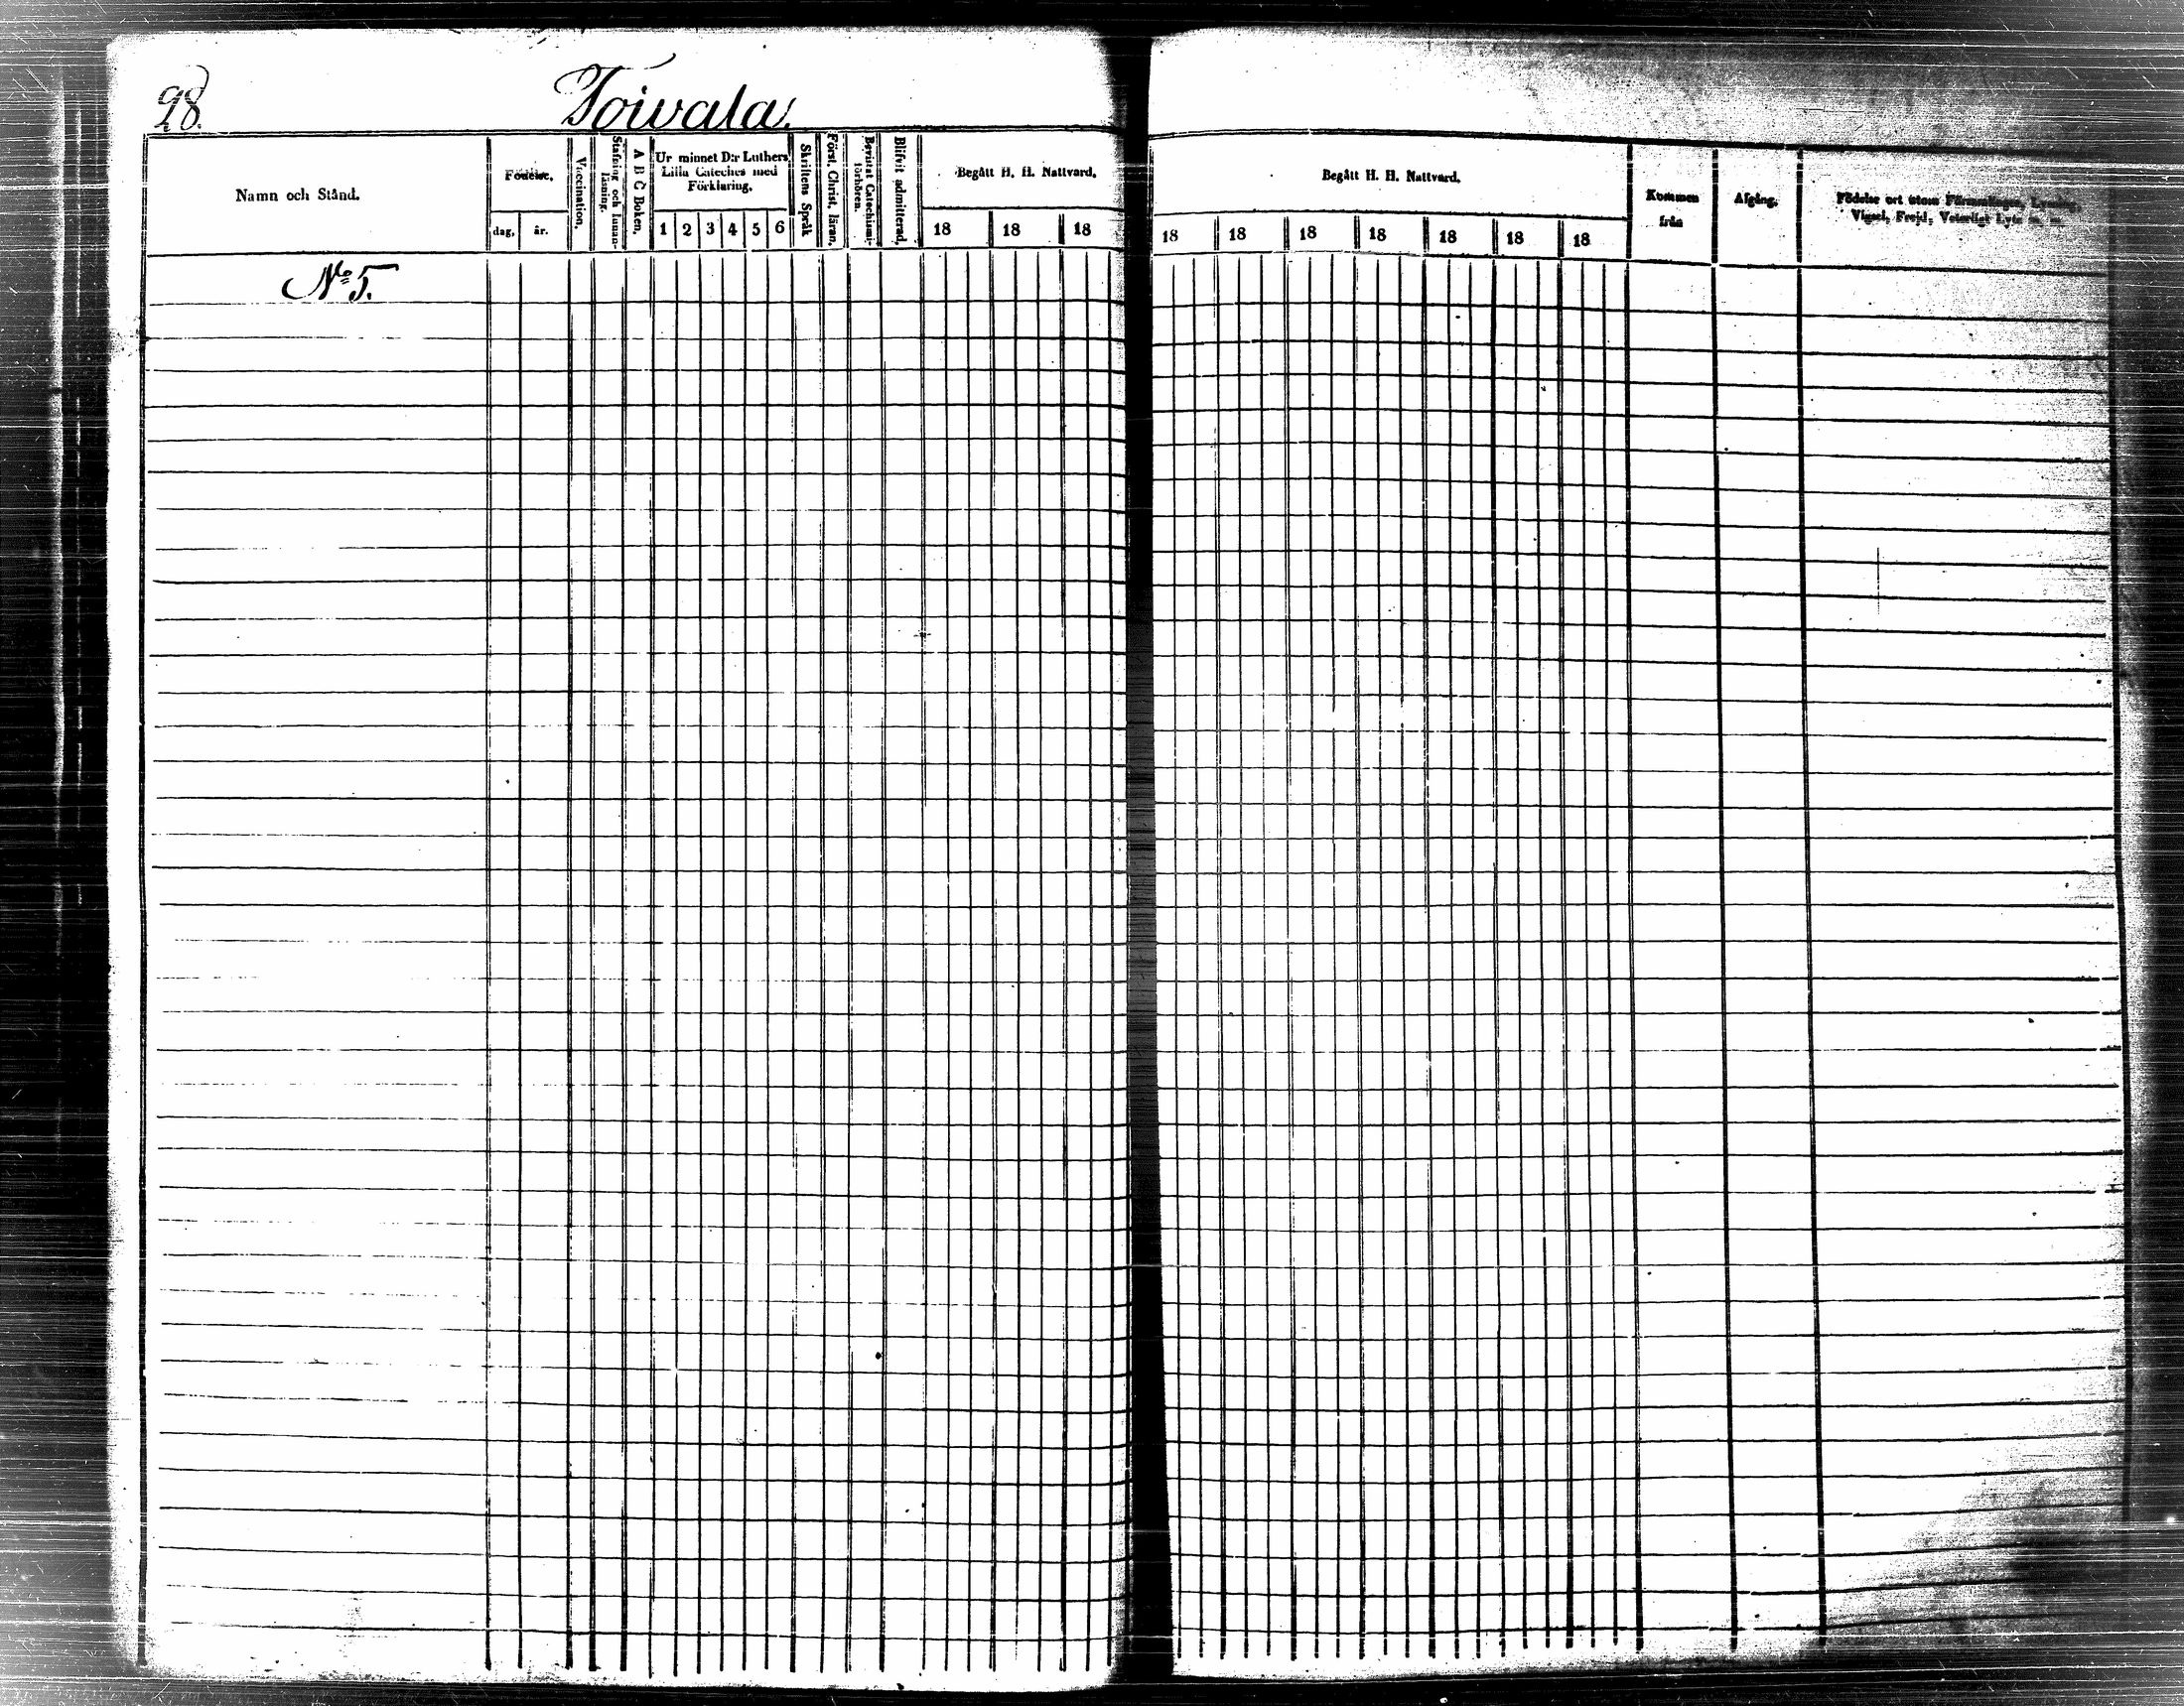 98.
Toivala.
Namn och Stånd.
Födelse,
dag, år.
Vaccination,
Stafning och Innan-
läsning.
A B C Boken,
Ur minnet D:r Luthers
Lilla Cateches med
Förklaring,
1 2 3 4 5 6
Skriftens Språk
Först. Christ. läran,
Bevistat Catechismi-
förhören.
Blifvit admitterad,
Begått H. H. Nattvard,
18 18 18
Begått H. H. Nattvard,
18 18 18 18 18 18 18
Kommen
från
Afgång,
Födelse ort utom Församlingen, Lysning,
Vigsel, Frejd, Veterligt Lyte m. m.
No 5.